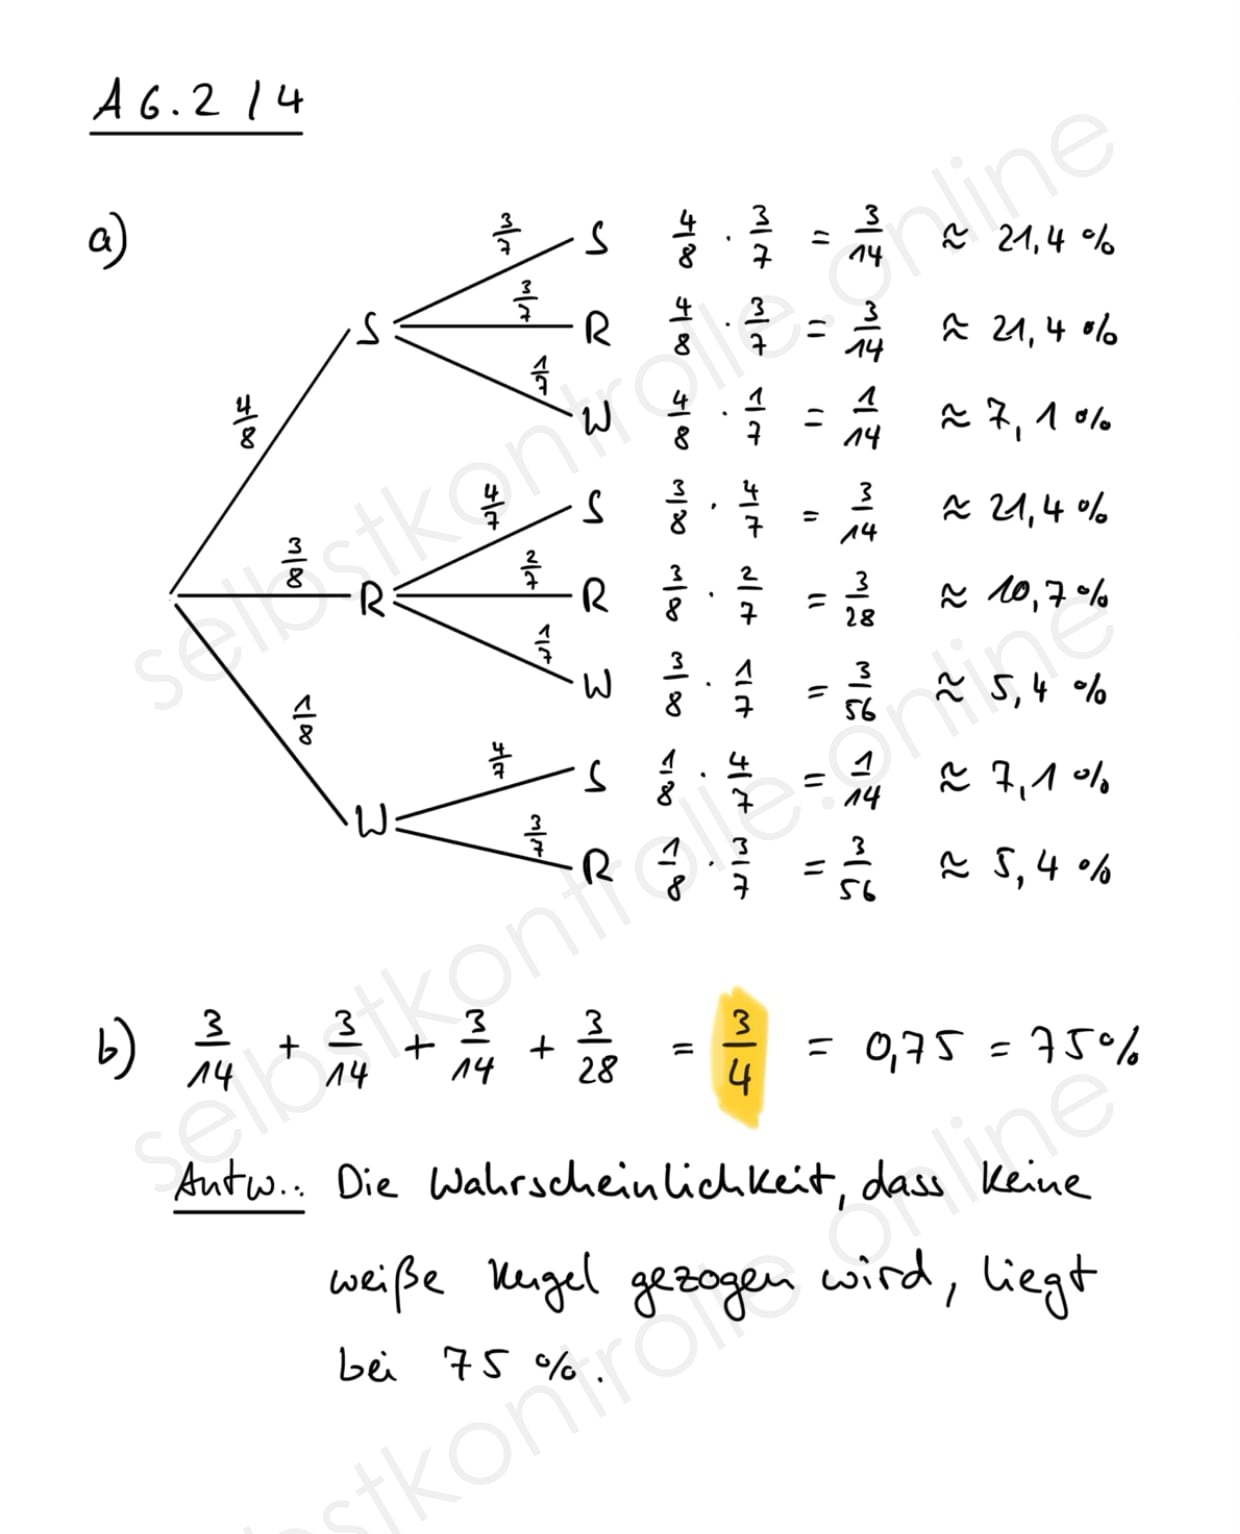 A 6.2 / 4
a)
4/8 S 3/7 S 4/8 · 3/7 = 3/14 ≈ 21,4 %
3/7 R 4/8 · 3/7 = 3/14 ≈ 21,4 %
1/7 W 4/8 · 1/7 = 1/14 ≈ 7,1 %
3/8 R 4/7 S 3/8 · 4/7 = 3/14 ≈ 21,4 %
2/7 R 3/8 · 2/7 = 3/28 ≈ 10,7 %
1/7 W 3/8 · 1/7 = 3/56 ≈ 5,4 %
1/8 W 4/7 S 1/8 · 4/7 = 1/14 ≈ 7,1 %
3/7 R 1/8 · 3/7 = 3/56 ≈ 5,4 %
b) 3/14 + 3/14 + 3/14 + 3/28 = 3/4 = 0,75 = 75 %
Antw.: Die Wahrscheinlichkeit, dass keine
weiße Kugel gezogen wird, liegt
bei 75 %.
selbstkontrolle.online
selbstkontrolle.online
selbstkontrolle.online